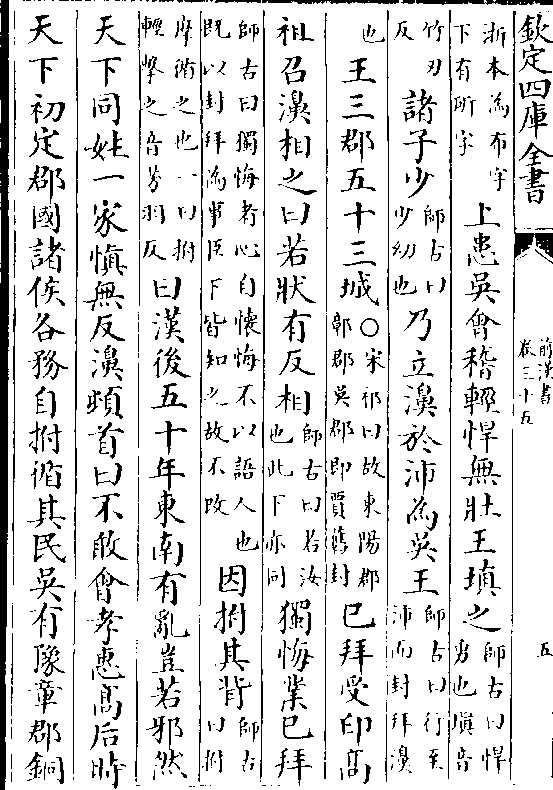 欽定四庫全書
前漢書
卷三十五
五
浙本為布字
下有斫字
上患吳會稽輕悍無壯王填之
師古曰悍
勇也填音
竹刃
反
諸子少
師古曰
少幼也
乃立濞於沛為吳王
師古曰行至
沛而封拜濞
也
王三郡五十三城
○宋祁曰故東陽郡
鄣郡吳郡即賈舊封
已拜受印高
祖召濞相之曰若狀有反相
師古曰若汝
也此下亦同
獨悔業已拜
師古曰獨悔者心自懷悔不以語人也
既以封拜為事臣下皆知之故不改
因拊其背
師古
曰拊
摩循之也一曰拊
輕擊之音芳羽反
曰漢後五十年東南有亂豈若邪然
天下同姓一家慎無反濞頓首曰不敢會孝惠高后時
天下初定郡國諸侯各務自拊循其民吳有豫章郡銅